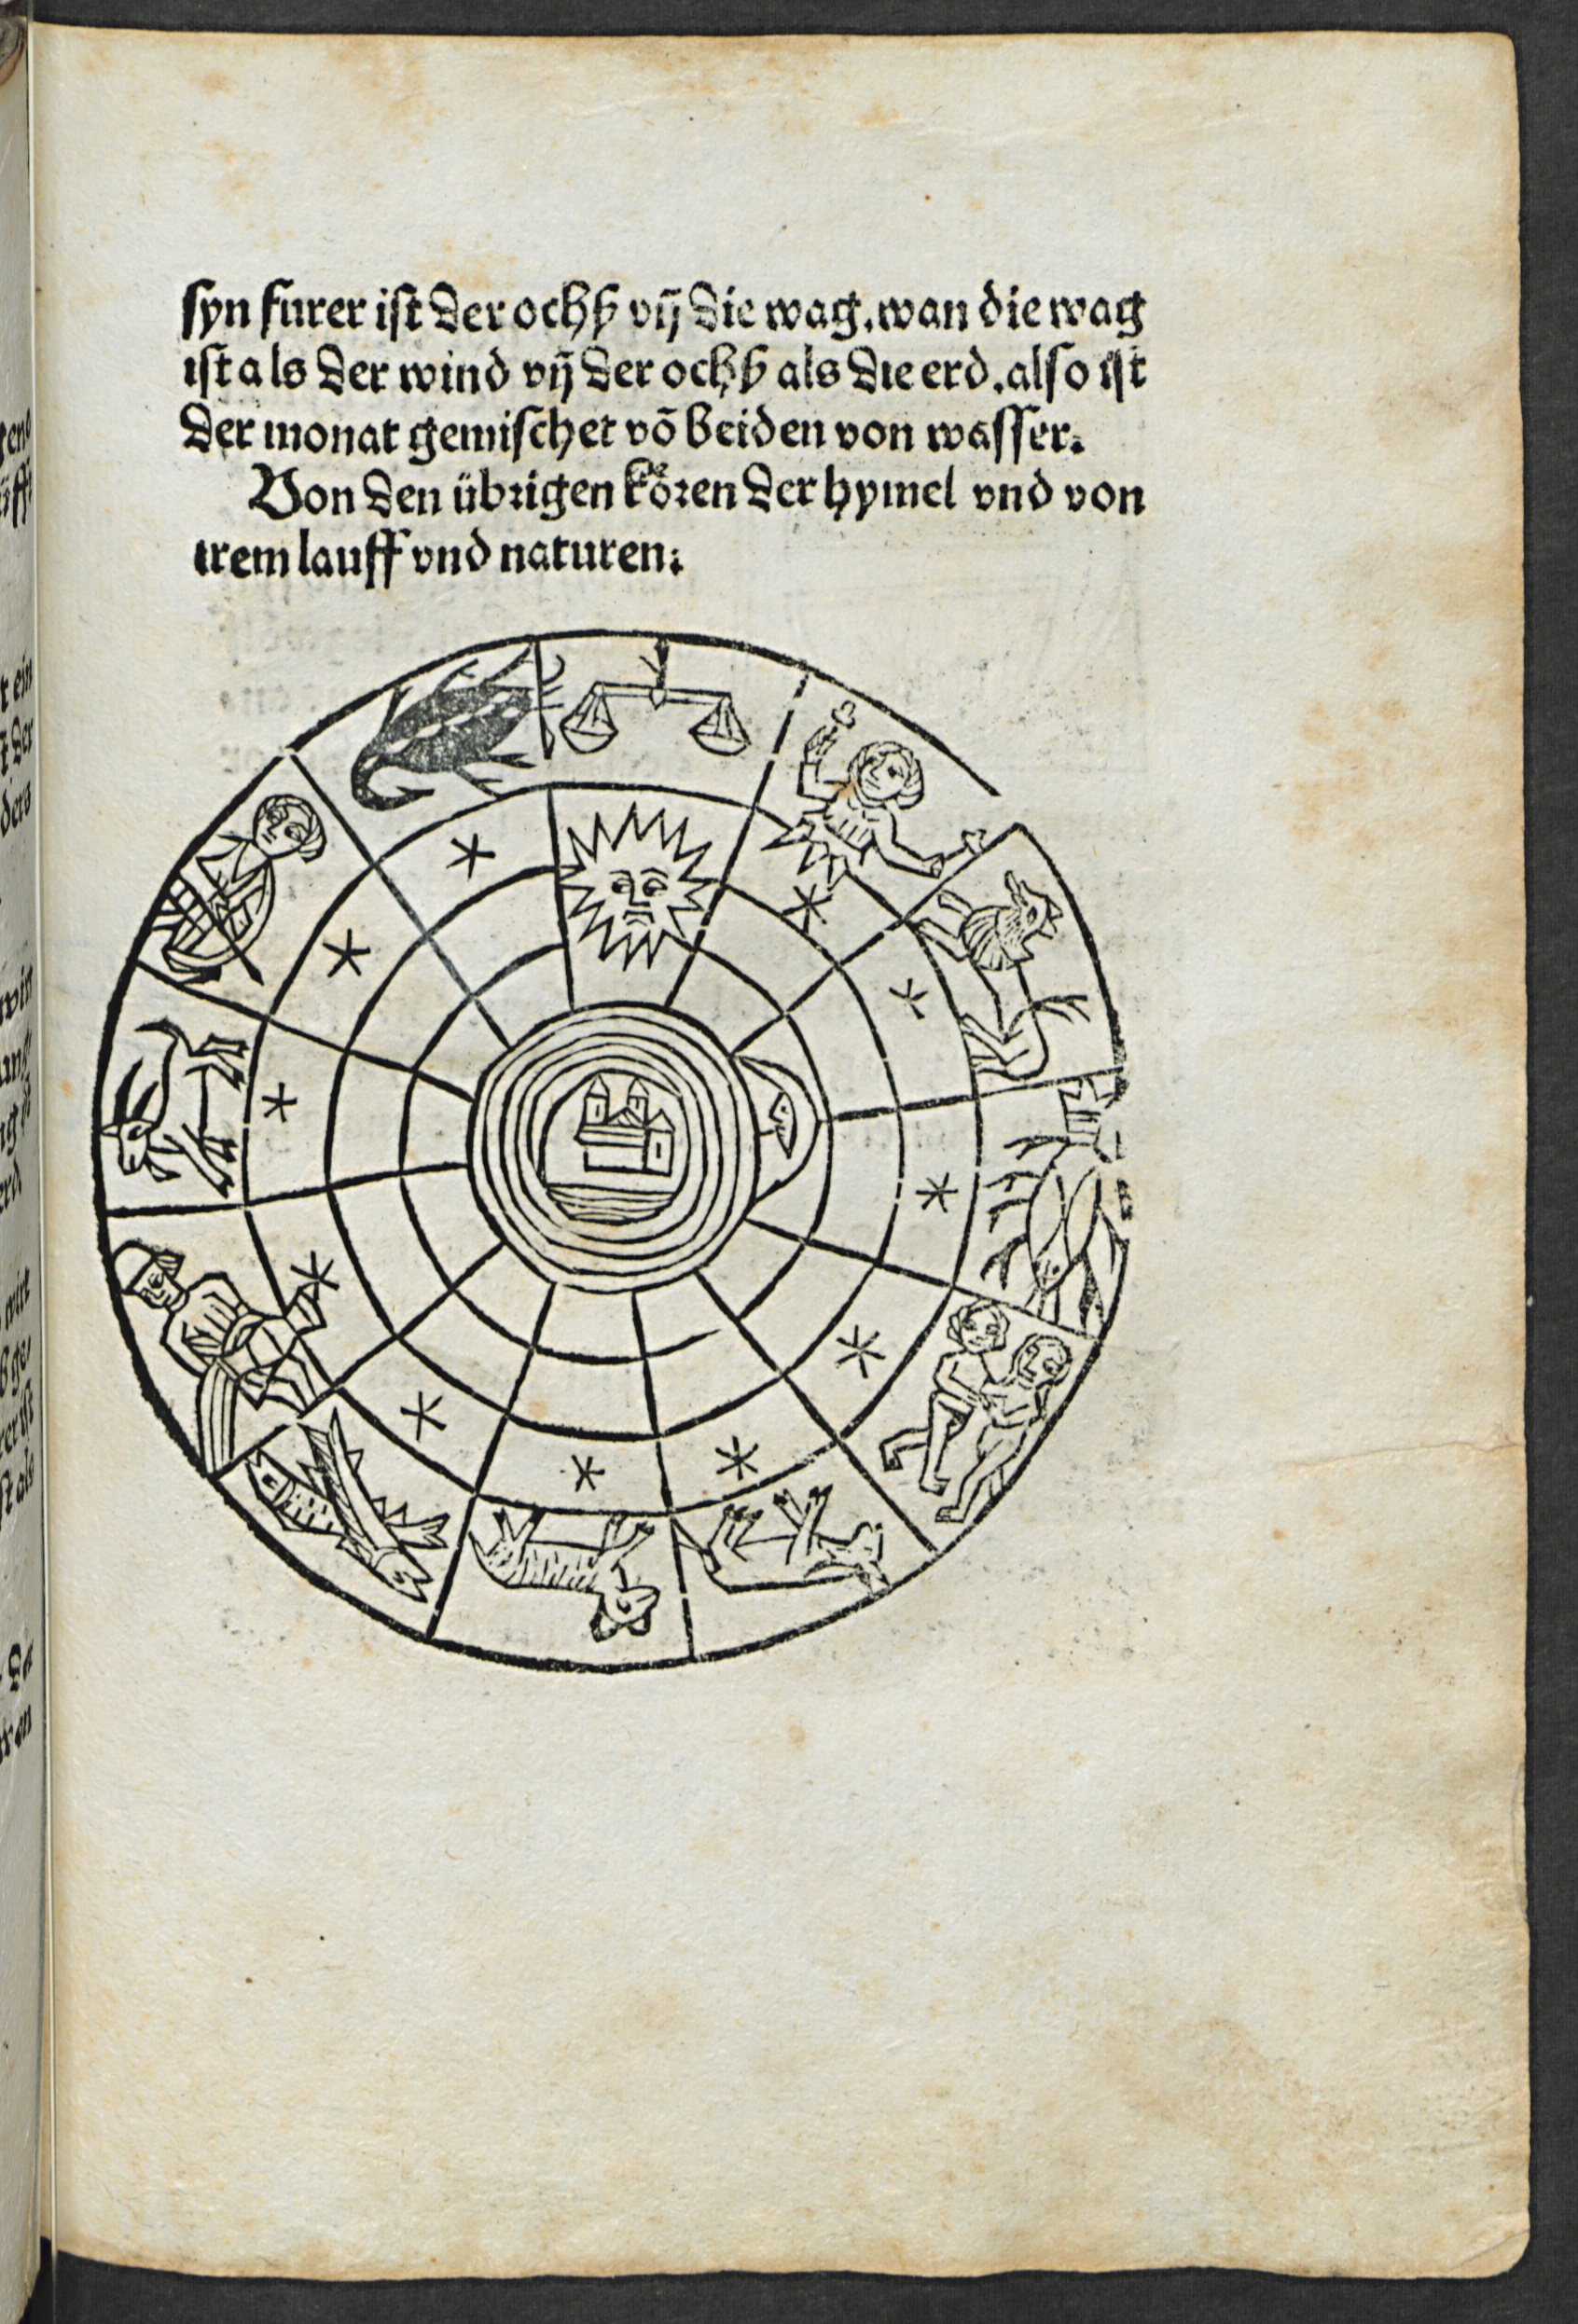 syn furer ist der ochß vn̄ die wag. wan die wag
ist als der wind vn̄ der ochß als die erd. also ist
der monat gemischet vō beiden von wasser.
Von den übrigen kören der hymel vnd von
irem lauff vnd naturen.